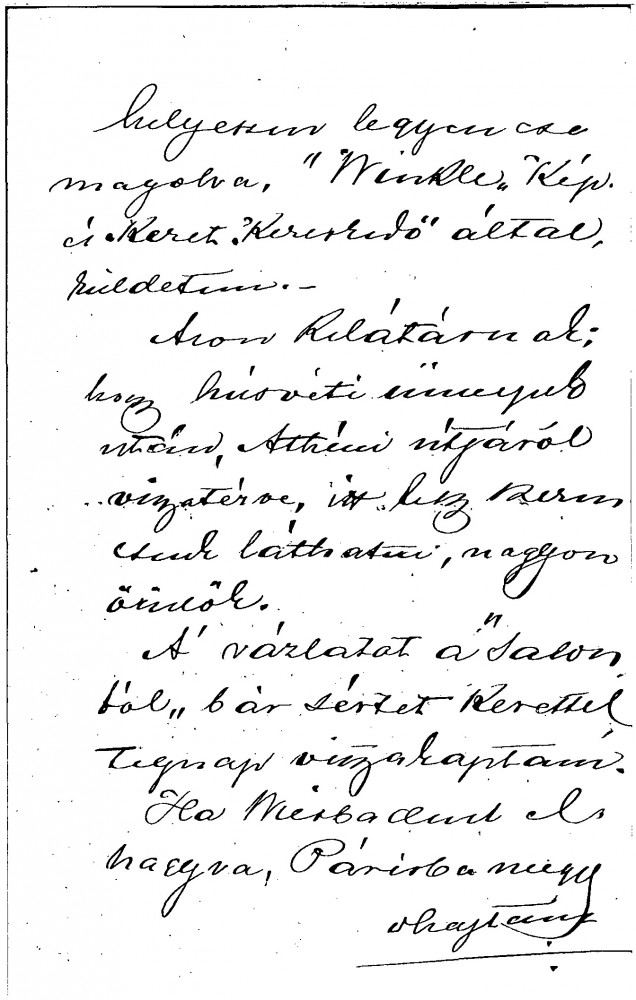 helyessen legyen cso
magolva, "Winkle„ Kép.
és Keret Kereskedő" által,
küldetem.—
Azon kilátásnak;
hogy húsvéti ünnepek
után, Athéni útjáról
viszatérve, itt lesz szeren
csénk láthatni, nagyon
örülök.
A' vázlatot a "Salon
ból„ bár sértet Kerettel
tegnap visszakaptam.
Ha Wiesbadent el
hagyva, Párisba megy
ohajtanám